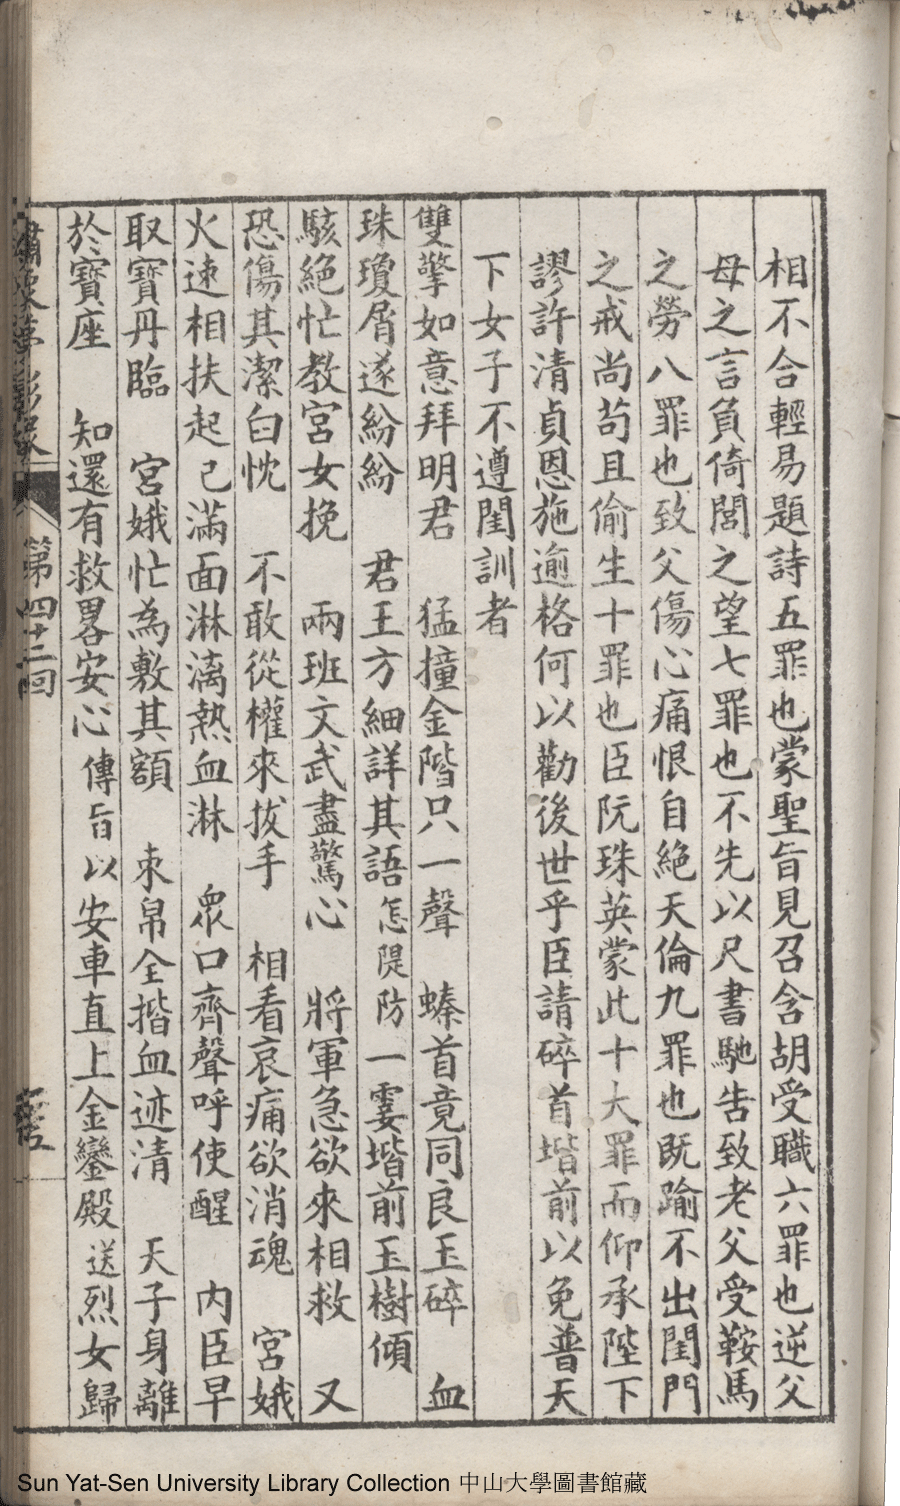 相不合輕易題詩五罪也蒙聖旨見召含胡受職六罪也逆父
母之言負倚閭之望七罪也不先以尺書馳吿致老父受鞍馬
之勞八罪也致父傷心痛恨自絶天倫九罪也既踰不出閨門
之戒尚苟且偷生十罪也臣阮珠英蒙此十大罪而仰承陛下
謬許清貞恩施逾格何以勸後世乎臣請碎首堦前以免普天
下女子不遵閨訓者
雙擎如意拜明君　猛撞金階只一聲　螓首竟同良玉碎　血
珠瓊屑遂紛紛　君王方細詳其語　怎隄防一霎堦前玉樹傾
駭絶忙教宮女挽　兩班文武盡驚心　將軍急欲來相救　又
恐傷其潔白忱　不敢從權來拔手　相看哀痛欲消魂　宮娥
火速相扶起　已滿面淋漓熱血淋　衆口齊聲呼使醒　內臣早
取寶丹臨　宮娥忙為敷其額　朿帛全揩血迹清　天子身離
於寶座　知還有救畧安心　傳旨以安車直上金鑾殿　送烈女歸
第四十二回
Sun Yat-Sen University Library Collection 中山大學圖書館藏